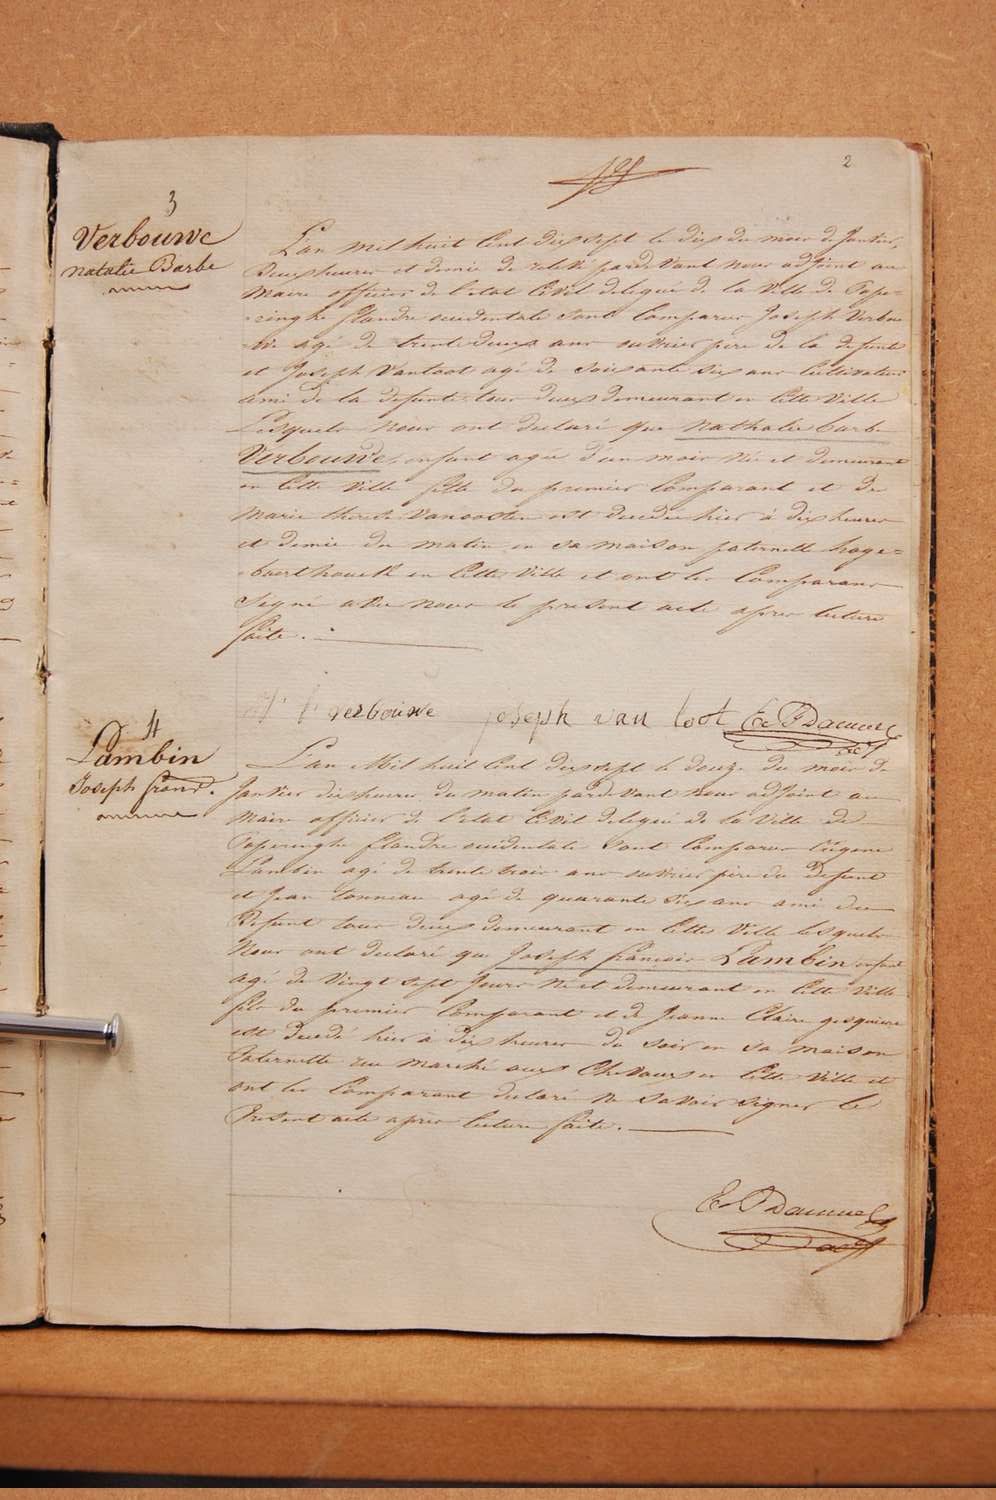 2
3
Verbouwe
natalie Barbe
L'an mil huit cent dix sept le dix du mois de janvier,
Deux heures et demie de relevé pardevant nous adjoint au
Maire officier de l'etat Civil delegué de la Ville de Pope=
=ringhe flandre occidentale sont Comparus Joseph Verbou
=we agé de trente deux ans ouvrier pere de la defunte
et Joseph Vanloot agé de soixante six ans Cultivateur
ami de la defunte tous deux demeurant en Cette Ville
Lesquels nous ont declaré que nathalie barbe
Verbouwe, enfant agée d'un mois née et demeurant
en Cette Ville fille du premier Comparant et de
Marie therese Vanooster est decedée hier à dix heures
et demie du matin en sa maison paternelle hage=
=baerthouck en Cette Ville et ont les Comparans
signé avec nous le present acte apres lecture
faite.
verbouwe joseph van loot
4
Lambin
Joseph franc.
L'an Mil huit Cent dix sept le douze du mois de
Janvier dix heures du matin pardevant nous adjoint au
Maire officier de l'etat Civil delegué de la Ville de
Poperinghe flandre occidentale sont Comparus Eugene
Lambin agé de trente trois ans ouvrier pere du Defunt
et Jean tonneau agé de quarante six ans ami du
Defunt tous deux demeurant en Cette Ville lesquels
Nous ont declaré que Joseph françois Lambin enfant
agé de Vingt sept Jours né et demeurant en Cette Ville
fils du premier Comparant et de Jeanne Claire gesquiere
est decedé hier à dix heures du soir en sa maison
Paternelle au marché aux Chevaux en Cette Ville et
ont les Comparant declaré ne savoir signer le
Present acte apres lecture faite.